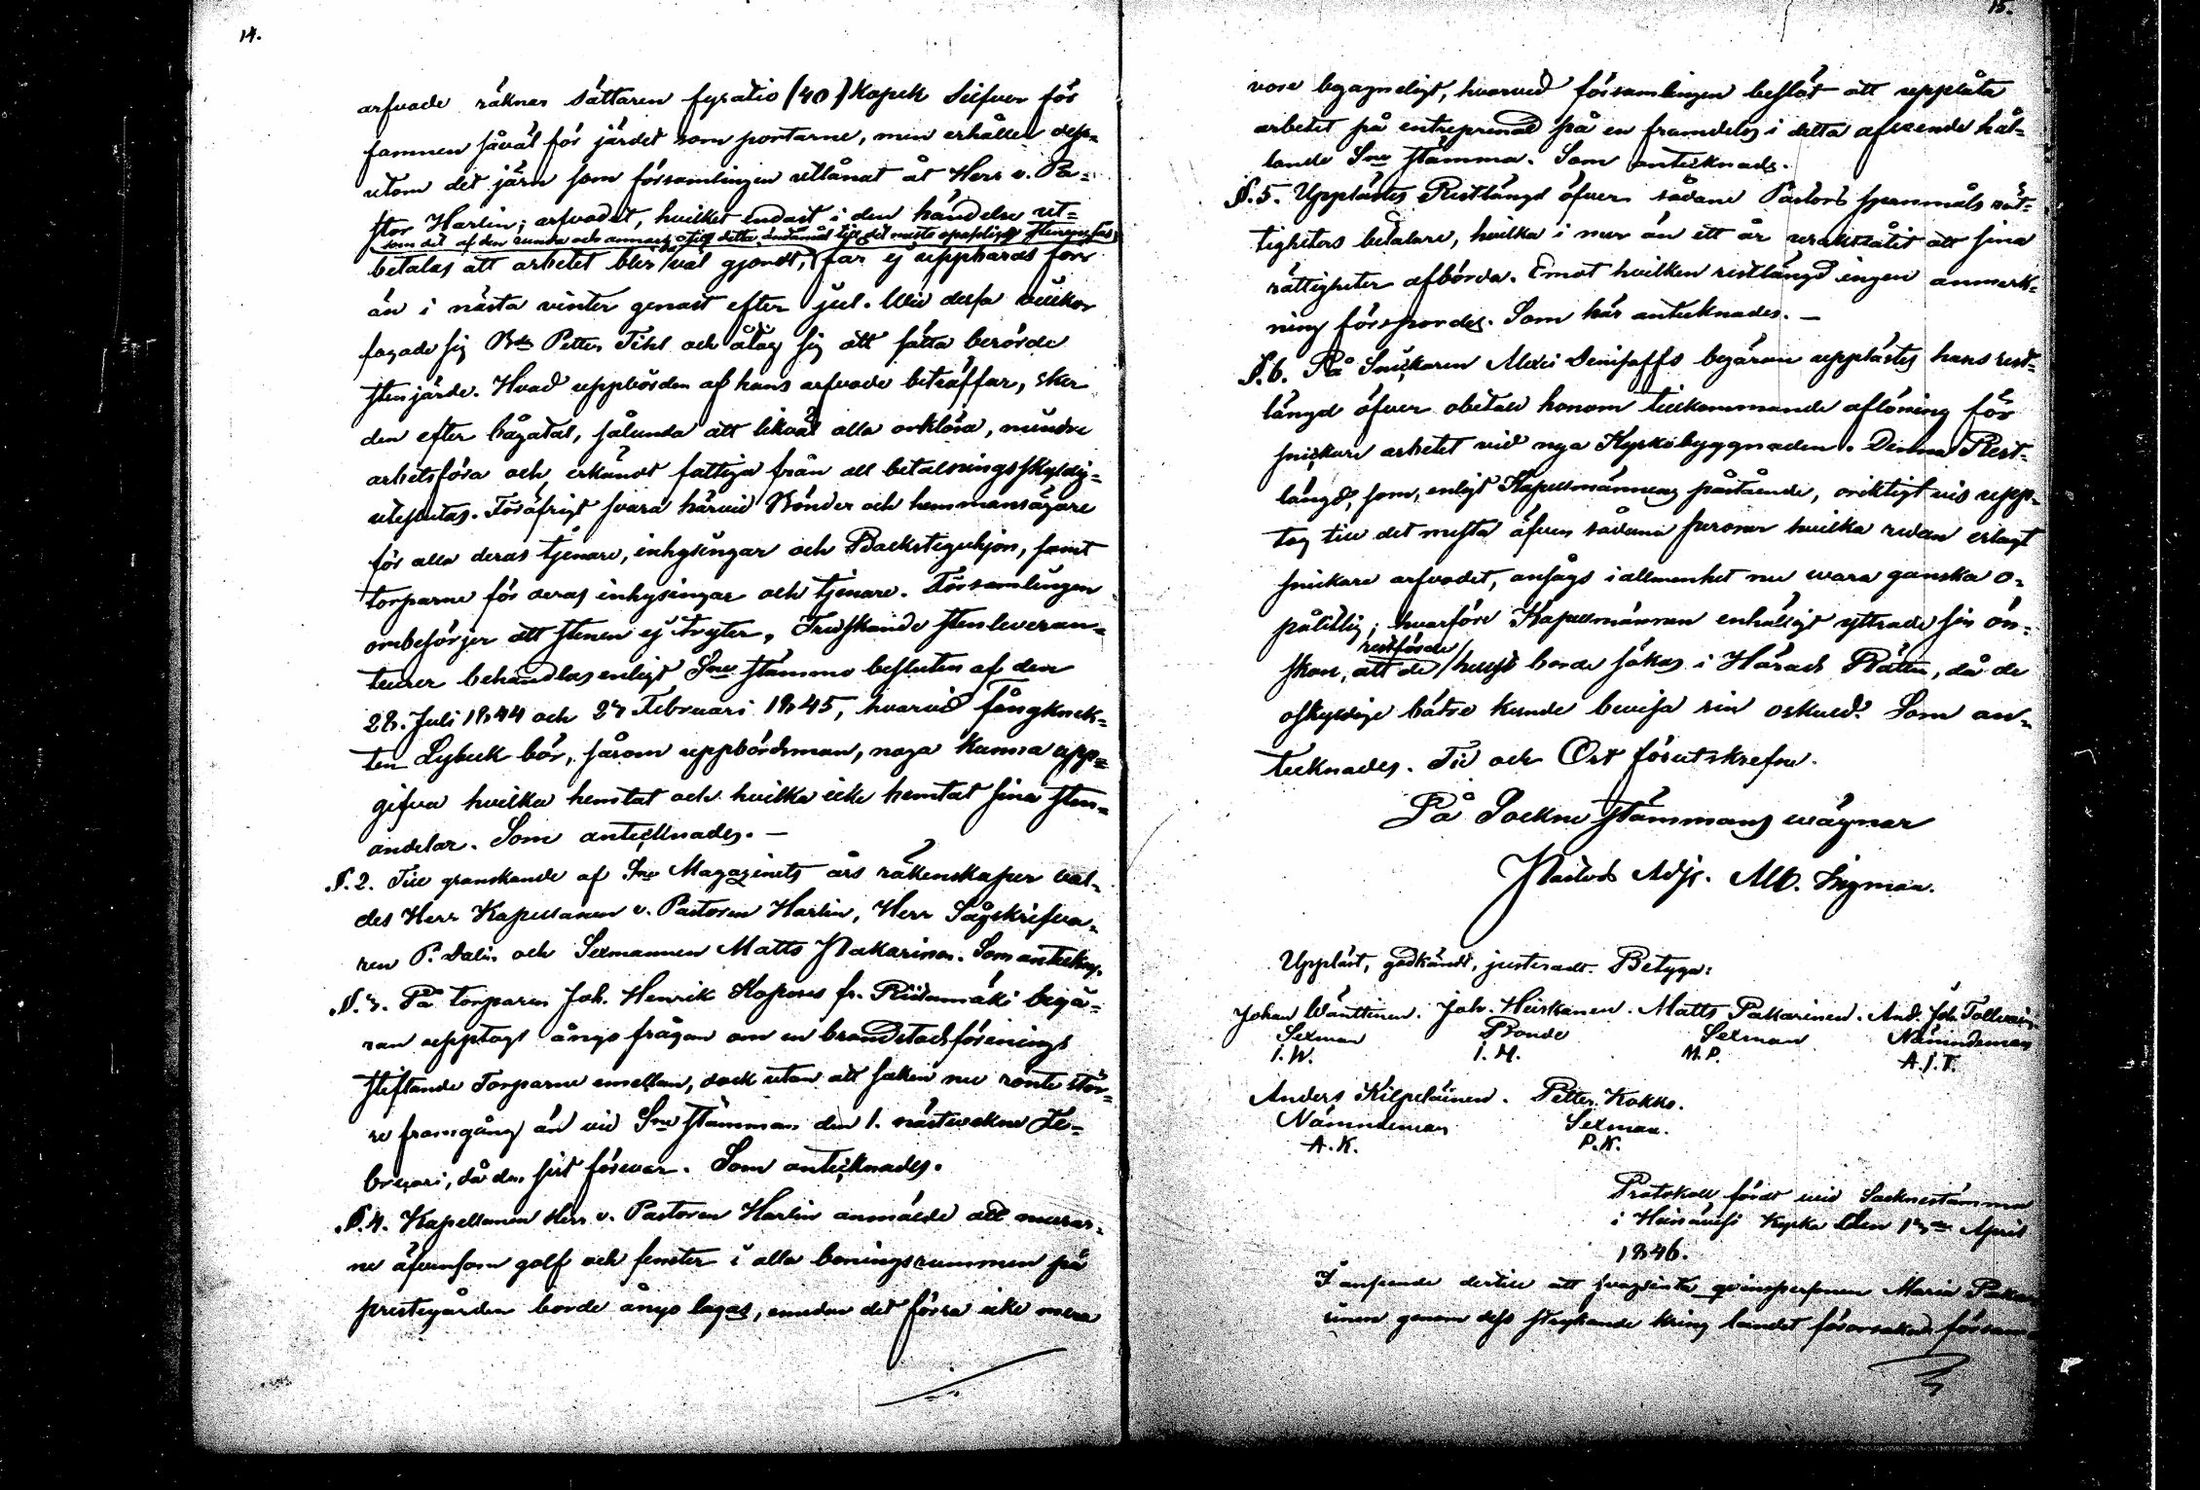 14.
arfvode räknar sättaren fyratio (40) Kopek Silfver för
famnen såväl för järdet som portarne, men erhåller dess-
utom det järn som församlingen utlånat åt Herr v. Pa-
stor Harlin; arfvodet, hvilket endast i den händelse ut-
som det af den runda och annars till detta ändamål
betalas att arbetet blir väl gjordt, får ej uppbäras förr
än i nästa vinter genast efter jul. Uti dessa vilkor
fogade sig Bd. Petter Tihl och ålåg sig att sätta berörde
stenjärde. Hvad uppbörden af hans arfvode beträffar, sker
den efter bågatal, sålunda att likväl alla orklösa, mindre
arbetsföra och erkändt fattiga från all betalningsskyldig-
uteslutas. Föröfrigt svara härvid Bönder och hemmansägare
för alla deras tjenare, inhysingar och Backstuguhjon, samt
torparne för deras inhysingar och tjenare. Församlingen
ombesörjer att stenen ej tryter. Tredskande stenleveran-
teurer behandlas enligt Sne stämmo besluten af den
28. Juli 1844 och 27 Februari 1845, hvarvid fångknek-
ten Lybeck bör, såsom uppbördsman, noga kunna upp-
gifva hvilka hemtat och hvilka icke hemtat sina sten-
andelar. Som antecknades. —
§. 2. Till granskande af Sne Magazinets års räkenskaper val-
des Herr Kapellanen v. Pastoren Harlin, Herr Sågskrifva-
ren P. Dalin och Sexmannen Matts Pakarinen. Som anteckn.
§. 3. På torparen Joh. Henrik Koponens fr. Riidanmäki begä-
ran upptogs ånyo frågan om en brandstodsförenings
stiftande Torparne emellan, dock utan att saken nu rönte stör-
re framgång än vid Sne stämman den 1. nästvekne Fe-
bruari, då den sist förevar. Som antecknades.
§. 4. Kapellanen Herr v. Pastoren Harlin anmälde att murar-
ne äfvensom golf och fenster i alla boningsrummen på
prestegården borde ånyo lagas, emedan det förra icke mera
15.
vore begagneligt, hvarvid församlingen beslöt att upplåta
arbetet på entreprenad på en framdeles i detta afseende hål-
lande Sne stämma. Som antecknads.
§. 5. Upplästes Restlängd öfver sådane Pastors spanmåls rät-
tigheters betalare, hvilka i mer än ett år uraktlåtit att sina
rättigheter afbörda. Emot hvilken restlängd ingen anmärk-
ning försspordes. Som här antecknades. —
§. 6. På Snickaren Alexei Denisoffs begäran upplästes hans rest-
längd öfver obetald honom tillkommande aflöning för
snickare arbetet vid nya Kyrkobyggnaden. Denna Rest-
längd, som, enligt Kapellmännens påstående, oriktigtvis upp-
tog till det mesta äfven sådana personer hvilka redan erlagt
snickare arfvodet, ansågs i allmenhet nu wara ganska o-
pålitlig; hvarföre Kapellmännen enhälligt yttrade sin ön-
restförde
skan, att de helst borde sökas i Härads Rätten, då de
oskyldige bättre kunde bevisa sin oskuld. Som an-
tecknades. Tid och Ort förutskrefne.
På Sockne stämmans wägnar
Pastors Adj. Alb. Ingman.
Uppläst, godkändt, justeradt. Betyga:
Johan Wänttinen. Joh. Heiskanen. Matts Pakarinen. And. Joh. Tolvain.
Sexman Bonde Sexman Nämndeman
I. W. I. H. M. P. A. J. T.
Anders Kilpeläinen. Petter Kokko.
Nämndeman Sexman.
A. K. P. K.
Protokoll fördt wid Socknestämma
i Heinävesi Kyrka den 13de April
1846.
I anseende dertill att qvinspersonen Maria Pakar
inen genom dess strykande kring landet förorsakade försam